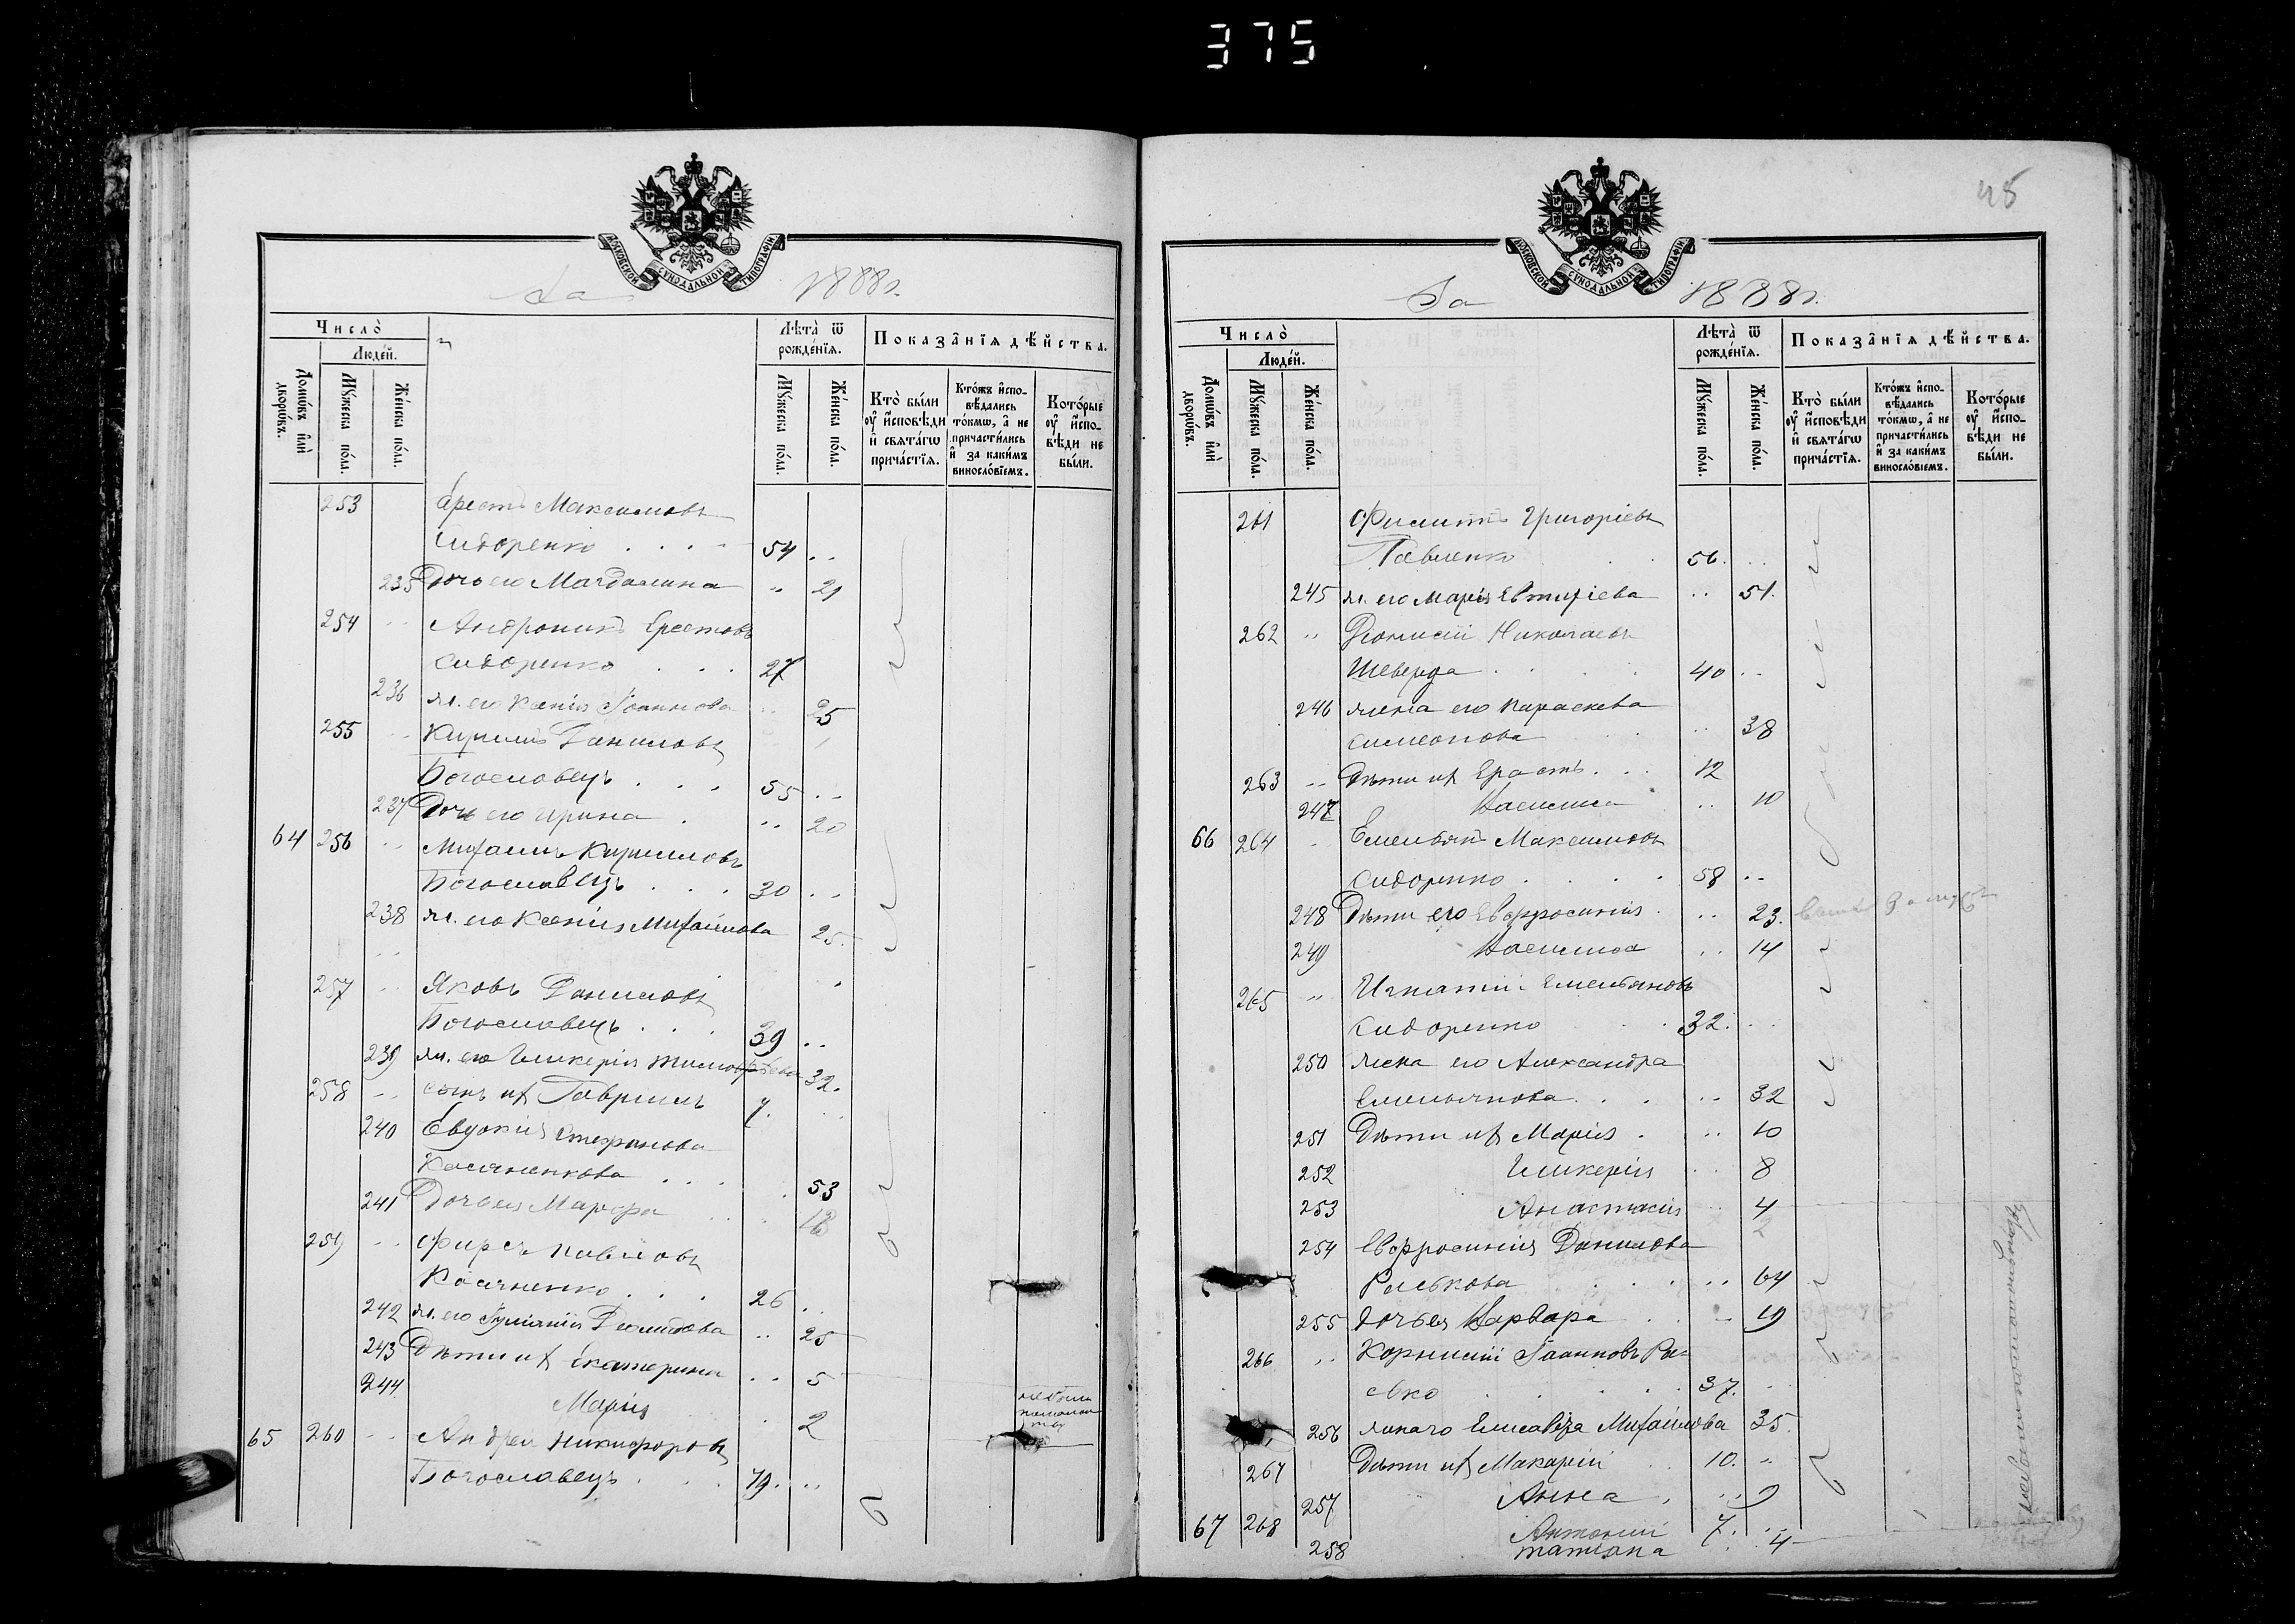 375
МОСКОВСКОЙ СѴНОДАЛЬНОЙ ТИПОГРАФІИ
За 1888 г.
Число̀
Людéй.
Домѡ́въ и҆лѝ дворѡ́въ.
Мꙋ́жеска по́ла.
Же́нска по́ла.
Лѣ́та ѿ рожде́нїѧ.
Мꙋ́жеска по́ла.
Же́нска по́ла.
Показа̂нїѧ дѣ́йства.
Кто̀ бы́ли оу҆ и҆́сповѣди и҆ свѧта́гѡ прича́стїѧ.
Кто́жъ и҆спо-вѣ́дались то́кмѡ, а҆ не причасти́лись и҆ за каки́мъ винослóвїемъ.
Кото́рые оу҆ и҆́спо-вѣди не бы́ли.
253 Ерестъ Максимовъ
Сидоренко . . . 54 ..
235 Дочь его Магдалина .. 21
254 .. Андроникъ Ерестовъ
Сидоренко . . . 27
236 ж. его Ксенія Іоаннова .. 25
255 .. Кириллъ Даниловъ
Богославецъ . . . 55 ..
237 Дочь его Ирина . .. 20
64 256 .. Михаилъ Кирилловъ
Богославецъ . . . 30 ..
238 ж. его Ксенія Михайлова 25.
257 .. Яковъ Даниловъ
Богославецъ . . . 39 ..
239 ж. его Гликерія Тимофѣева 32.
258 .. сынъ их Гавріилъ 7. ..
240 Евдокія Стефанова
Касяненкова . . . . 53
241 Дочь ея Марфа .. 18
259 .. Фирсъ Павловъ
Касяненко . . . 26 ..
242 ж. его Іуліанія Деомидова .. 25
243 Дѣти их Екатерина .. 5
244 Марія . 2
65 260 .. Андрей Никифоровъ
Богославецъ . . . 79. ..
45
МОСКОВСКОЙ СѴНОДАЛЬНОЙ ТИПОГРАФІИ
За 1888 г.
Число̀
Людéй.
Домѡ́въ и҆лѝ дворѡ́въ.
Мꙋ́жеска по́ла.
Же́нска по́ла.
Лѣ́та ѿ рожде́нїѧ.
Мꙋ́жеска по́ла.
Же́нска по́ла.
Показа̂нїѧ дѣ́йства.
Кто̀ бы́ли оу҆ и҆́сповѣди и҆ свѧта́гѡ прича́стїѧ.
Кто́жъ и҆спо-вѣ́дались то́кмѡ, а҆ не причасти́лись и҆ за каки́мъ винослóвїемъ.
Кото́рые оу҆ и҆́спо-вѣди не бы́ли.
261 Филиппъ Григоріевъ
Павленко . 56. ..
245 ж. его Марія Евтихіева .. 51.
262 .. Діонисій Николаевъ
Шеверда . . . 40 ..
246 жена его Параскева
Симеонова .. 38
263 .. Дѣти их Ерастъ . . . 12
247 Василиса .. 10
66 264 . Емельянъ Максимовъ
Сидоренко . . . . 58 ..
248 Дѣти его Евфросинія . .. 23.
249 Василиса .. 14
265 .. Игнатій Емельяновъ
Сидоренко . 32. ..
250 жена его Александра
Емельянова . . . .. 32
251 Дѣти их Марія . .. 10
252 Гликерія .. 8
253 Анастасія .. 4
254 Евфросинія Данилова
Раськова . . . .. 64
255 дочь ея Варвара . .. 19
266 .. Корнилій Іоанновъ Ра-
сько . . . . 37. ..
256 жена его Елисавета Михайлова 35.
267 Дѣти их Макарій . 10. ..
257 Анна . .. 9
67 268 Антоній 7. ..
258 Татіана . 4